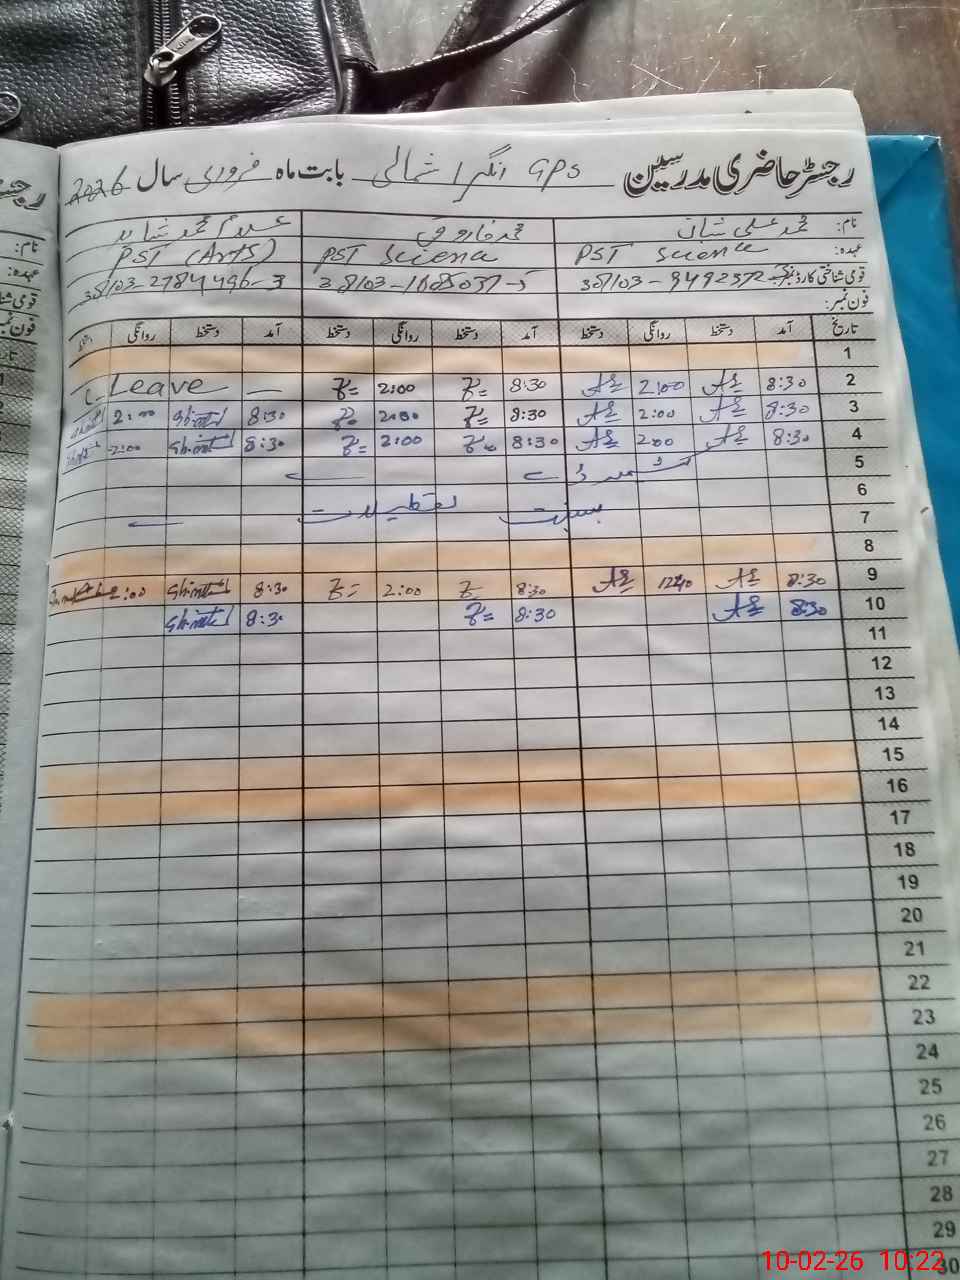 رجسٹر حاضری مدرسین GPS انگرا شمالی بابت ماہ فروری سال 2026
نام: محمد علی شان محمد فاروق غلام محمد شاہد
عہدہ: PST Science PST Science PST (Arts)
قومی شناختی کارڈ نمبر 38103-1685037-5 38103-2784496-3
فون نمبر:
تاریخ آمد دستخط روانگی دستخط آمد دستخط روانگی دستخط آمد دستخط روانگی دستخط
1
2 8:30 2:00 8:30 2:00 — Leave
3 8:30 2:00 8:30 2:00 8:30 2:00
4 8:30 2:00 8:30 2:00 8:30 2:00
5
6
7 بسنت تعطیلات
8
9 8:30 12:40 8:30 2:00 8:30 2:00
10 8:30 8:30 8:30
11
12
13
14
15
16
17
18
19
20
21
22
23
24
25
26
27
28
29
30
10-02-26 10:22